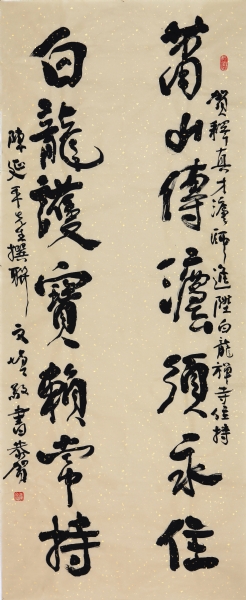 賀釋真才法師進陞白龍禪寺住持
山傳法須永住
白龍護寶賴常持
陳延年先生撰聯 文
敬書恭賀